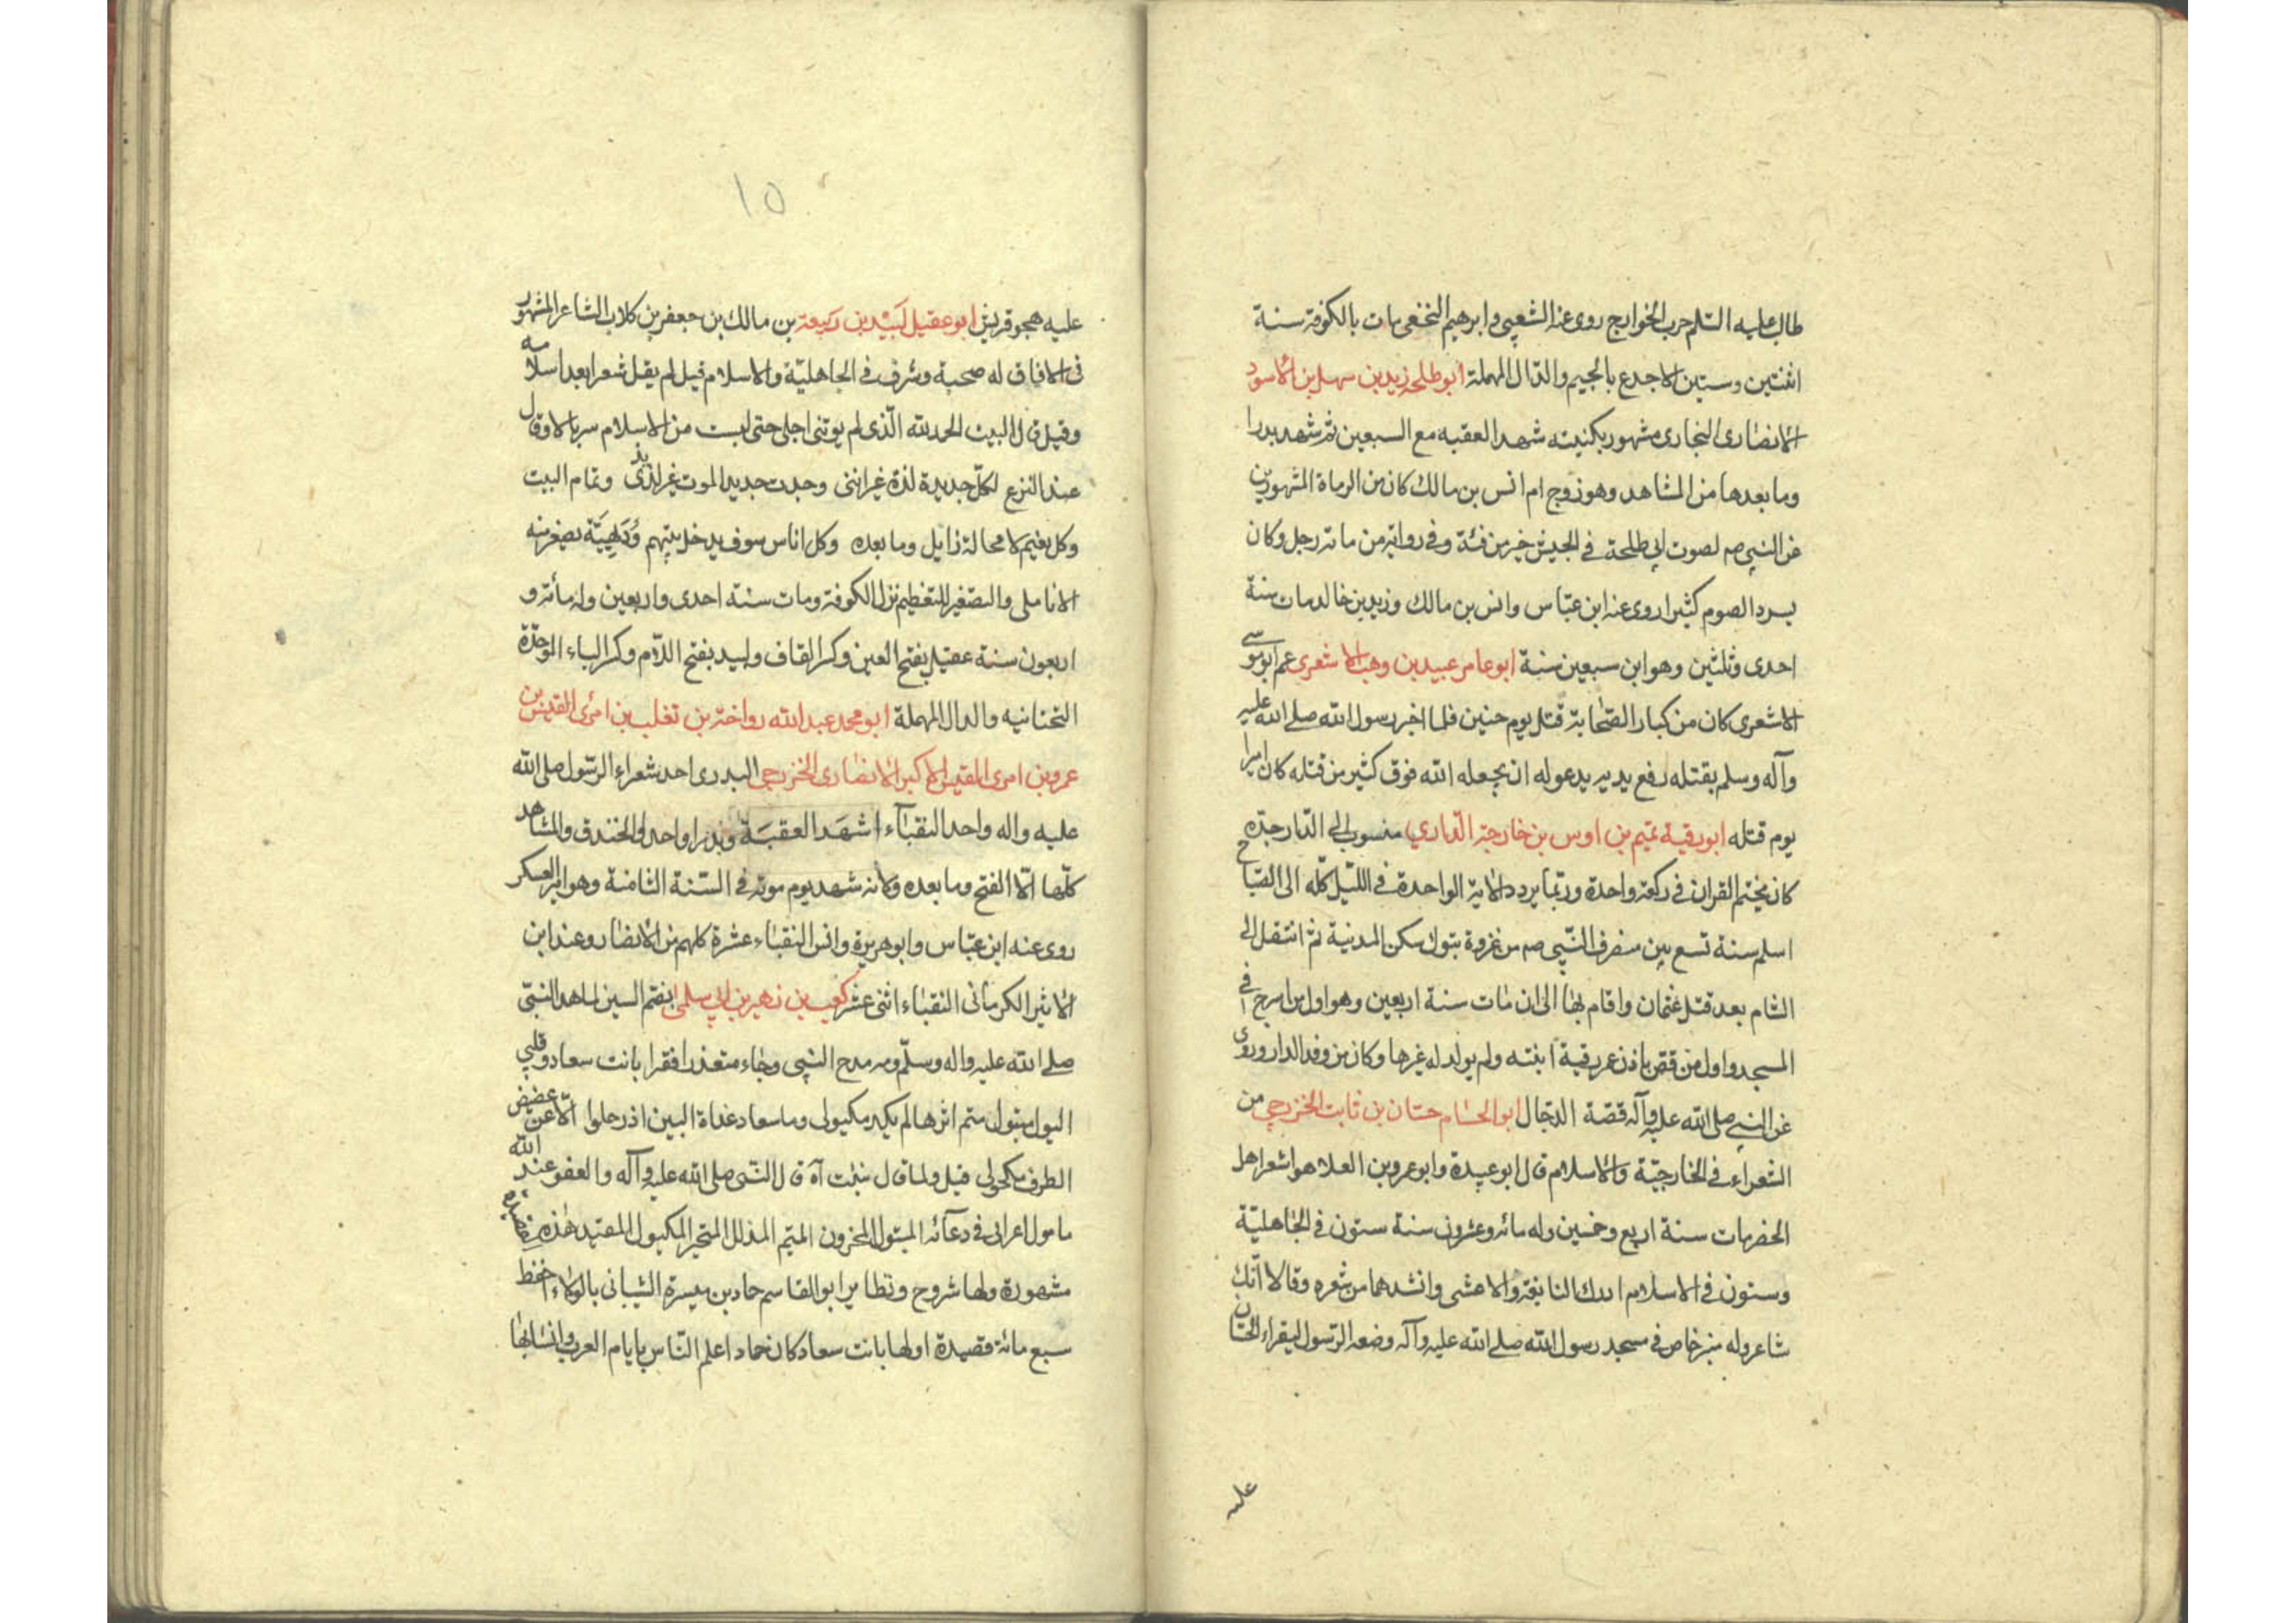 طالب عليه السّلم حرب الخوارج روى عنه الشعبى وابرهيم النخعى مات بالكوفة سنة
اثنتين وستين الاجدع بالجيم والدّال المهملة ابو طلحه زيد بن سهل بن الاسود
الانصارى النجارى مشهور بكنيته شهد العقبه مع السبعين ثم شهد بدرا
وما بعدها من المشاهد وهو زوج ام انس بن مالك كان من الرماة المشهورين
عن النبى صم لصوت ابى طلحة فى الجيش خير من فئة وفى رواية من مائة رجل وكان
يسرد الصوم كثيرا روى عنه ابن عبّاس وانس بن مالك وزيد بن خالد مات سنة
احدى وثلثين وهو ابن سبعين سنة ابو عامر عبيد بن وهب الاشعرى عم ابو موسى
الاشعرى كان من كبار الصّحابة قتل يوم حنين فلما اخبر رسول الله صلى الله عليه
وآله وسلم بقتله رفع يديه يدعو له ان يجعله الله فوق كثير من قتله كان اميرا
يوم قتله ابو رقية تميم بن اوس بن خارجة الدّارى منسوب الى الدّار جدّه
كان يختم القران فى ركعة واحدة وربّما يردد الاية الواحدة فى اللّيل كلّه الى الصّباح
اسلم سنة تسع بين منصرف النّبى صم من غزوة تبوك سكن المدنية ثم انتقل الى
الشام بعد قتل عثمان واقام بها الى ان مات سنة اربعين وهو اول من اسرج فى
المسجد واول من قص باذن عمر رقية ابنته ولم يولد له غيرها وكان من وفد الدار وروى
عن النبى صلى الله عليه وآله قصّة الدجّال ابو الحسام حسّان بن ثابت الخزرجى من
الشعراء فى الخارجيّة والاسلام قال ابو عبيدة وابو عمرو بن العلا هو اشعر اهل
الحضر مات سنة اربع وخمسين وله مائة وعشرون سنة ستون فى الجاهليّة
وستون فى الاسلام ادرك النابغة والاعشى وانشدهما من شعره وقالا انّك
شاعر وله منبر خاص فى مسجد رسول الله صلى الله عليه وآله وضعه الرّسول ليقراء الحسّان
عليه
١٥
عليه هجو قريش ابو عقيل لَبيْد بن ربيعة بن مالك بن جعفر بن كلاب الشاعر المشهور
فى الافاق له صحبة وشرف فى الجاهليّة والاسلام قيل لم يقل شعرا بعد اسلامه
وقيل قال البيت الحمد لله الّذى لم يوتنى اجلى حتى لبست من الاسلام سربالا وقال
عند النزع لكلّ جديدة لذة غير اننى وجدت جديد الموت غير لذيذ وتمام البيت
وكل نعيم لا محالة زايل وما بعده وكل اناس سوف يدخل بينهم دُوَيْهِيَّة تصفر منه
الانامل والتصغير للتعظيم نزل الكوفة ومات سنة احدى واربعين وله مائة و
اربعون سنة عقيل بفتح العين وكسر القاف ولبيد بفتح اللّام وكسر الباء الموحّدة
التحتانيه والدال المهملة ابو محمد عبد الله رواحة بن تغلب بن امرئ القيس بن
عمرو بن امرى القيس الاكبر الانصارى الخزرجى البدرى احد شعراء الرّسول صلى الله
عليه واله واحد النقبآء شهَد العقبَة وبدرا واحد والخندق والمشاهد
كلّها الّا الفتح وما بعده ولانه شهد يوم موته فى السّنة الثامنة وهو امير العسكر
روى عنه ابن عبّاس وابو هريرة وانس النقباء عشرة كلهم من الانصار وعند ابن
الاثير الكرمانى النقباء اثنى عشر كعب بن زهير بن ابى سلمى بضم السين لما هد النبىّ
صلى الله عليه واله وسلّم ومه مدح النبى وجاء متعذرا فقرا بانت سعاد وقلبى
اليول متبول متم اثرها لم يكبد مكبولى وما سعاد غداة البين اذ رحلوا الّا عن غضيض
الطرف مكحولى قيل ولما قال نبئت آه قال النّبى صلى الله عليه وآله والعفو عند الله
مامول اعرابى فى دعآئه المبتول المحزون المتيم المذلل المتحير المكبول المقيد هذه
مشهورة ولها شروح ونظاير ابو القاسم حماد بن ميسرة الشيبانى بالولاء حفظ
سبع مائة قصيدة اولها بانت سعاد كان حماد اعلم النّاس بايام العرب وانسابها